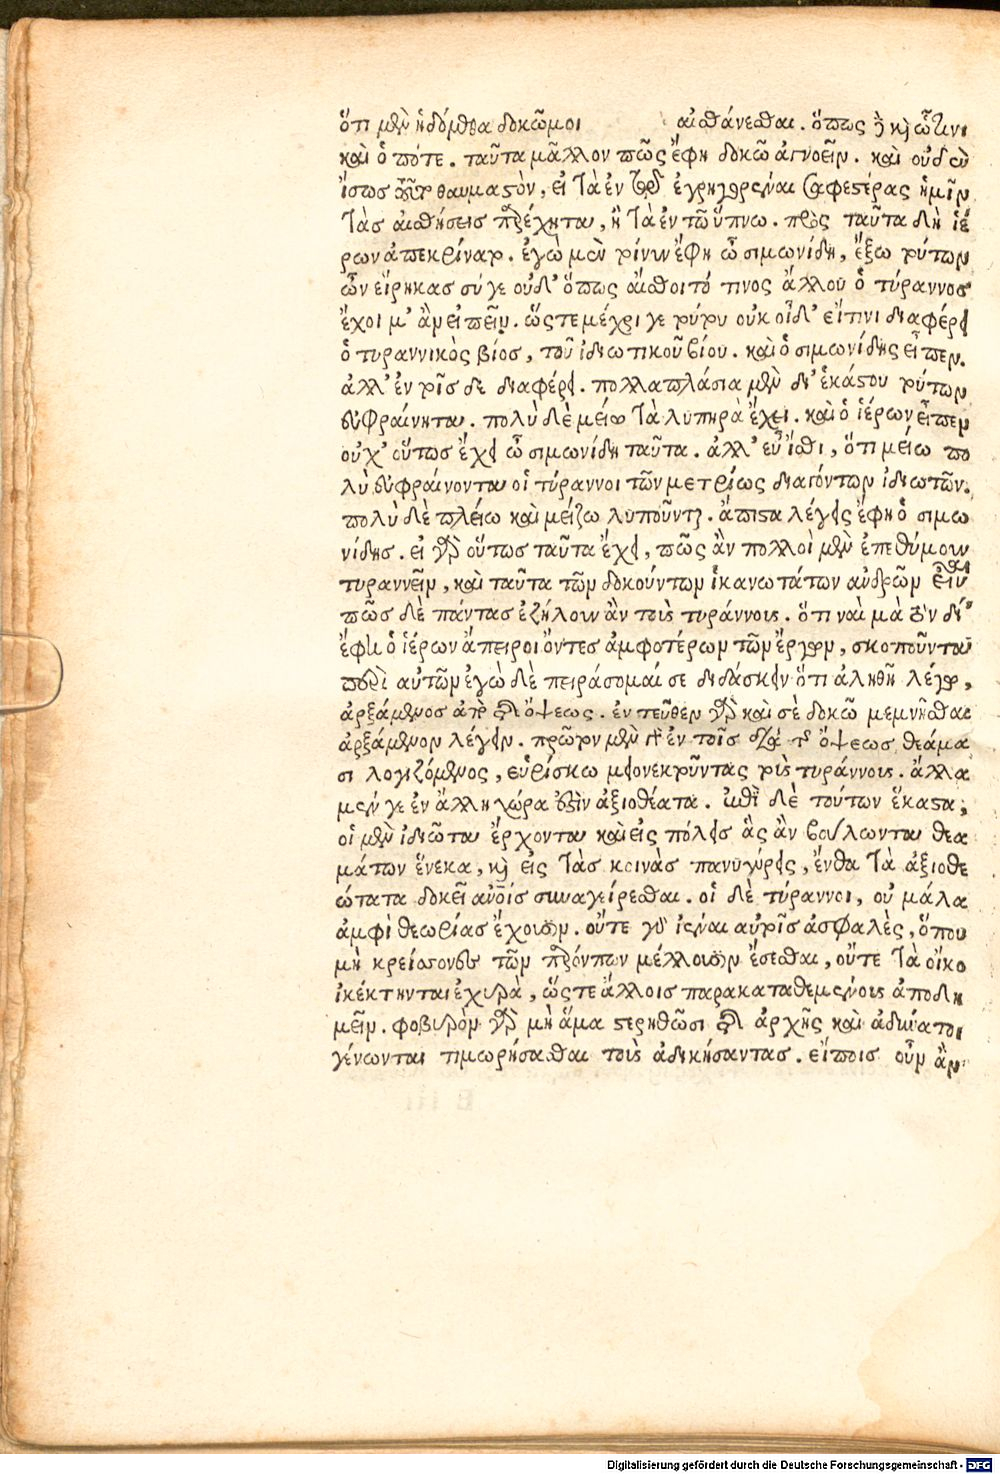 ὅτι μὲν ἡδόμεθα δοκῶμοι αἰσθάνεσθαι. ὅπως ἢ καὶ ᾧτινι
καὶ ὁπότε. ταῦτα μᾶλλον πῶς ἔφη δοκῶ ἀγνοεῖν. καὶ οὐδὲν
ἴσως τοῦτο θαυμαστὸν, εἰ τὰ ἐν τῷ ἐγρηγορέναι σαφεστέρας ἡμῖν
τὰς αἰσθήσεις παρέχηται, ἢ τὰ ἐν τῶ ὕπνω. πρὸς ταῦτα δὴ ἱέ
ρων ἀπεκρίνατο. ἐγὼ μὲν τοίνυν ἔφη ὦ σιμωνίδη, ἔξω τούτων
ὧν εἴρηκας σύ γε οὐδ' ὅπως αἴσθοιτό τινος ἄλλου ὁ τύραννος
ἔχοι μ' ἂν εἰπεῖν. ὥςτε μέχρι γε τούτου οὐκ οἶδ' εἴτινι διαφέρει
ὁ τυραννικὸς βίος, τοῦ ἰδιωτικοῦ βίου. καὶ ὁ σιμωνίδης εἶπεν.
ἀλλ' ἐν τοῖς δε διαφέρει. πολλαπλάσια μὲν δι' ἑκάστου τούτων
εὐφραίνηται. πολὺ δὲ μείω τὰ λυπηρὰ ἔχει. καὶ ὁ ἱέρων εἶπεν
οὐχ' οὕτως ἔχει ὦ σιμωνίδη ταῦτα. ἀλλ' εὖ ἴσθι, ὅτι μείω πο
λὺ εὐφραίνονται οἱ τύραννοι τῶν μετρίως διαγόντων ἰδιωτῶν.
πολὺ δὲ πλείω καὶ μείζω λυποῦνται. ἄπιστα λέγεις ἔφη ὁ σιμω
νίδης. εἰ γὰρ οὕτως ταῦτα ἔχει, πῶς ἂν πολλοὶ μὲν ἐπεθύμουν
τυραννεῖν, καὶ ταῦτα τῶν δοκούντων ἱκανωτάτων ἀνδρῶν εἶναι
πῶς δὲ πάντας ἐζήλουν ἂν τοὺς τυράννους. ὅτι ναὶ μὰ τὸν δί'
ἔφη ὁ ἱέρων ἄπειροι ὄντες ἀμφοτέρων τῶν ἔργων, σκοποῦνται
περὶ αὐτῶν ἐγὼ δὲ πειράσομαί σε διδάσκειν ὅτι ἀληθῆ λέγω,
ἀρξάμενος ἀπὸ τῆς ὄψεως. ἐν τεῦθεν γὰρ καὶ σὲ δοκῶ μεμνῆσθαι
ἀρξάμενον λέγειν. πρῶτον μὲν γὰρ ἐν τοῖς διὰ τῆς ὄψεως θεάμα
σι λογιζόμενος, εὑρίσκω μειονεκτοῦντας τοὺς τυράννους. ἄλλα
μέν γε ἐν ἄλλη χώρα ἐστὶν ἀξιοθέατα. ἐπὶ δὲ τούτων ἕκαστα,
οἱ μὲν ἰδιῶται ἔρχονται καὶ εἰς πόλεις ἃς ἂν βούλωνται θεα
μάτων ἕνεκα, καὶ εἰς τὰς κοινὰς πανυγύρεις, ἔνθα τὰ ἀξιοθε
ώτατα δοκεῖ αὐτοῖς συναγείρεσθαι. οἱ δὲ τύραννοι, οὐ μάλα
ἀμφὶ θεωρίας ἔχουσιν. οὔτε γὰρ ἰέναι αὐτοῖς ἀσφαλὲς, ὅπου
μὴ κρείσσονες τῶν παρόντων μέλλουσιν ἔσεσθαι, οὔτε τὰ οἴκο
ι κέκτηνται ἐχυρὰ, ὥςτε ἄλλοις παρακαταθεμένους ἀποδη
μεῖν. φοβερὸν γὰρ μὴ ἅμα στερηθῶσι τῆς ἀρχῆς καὶ ἀδύνατοι
γένωνται τιμωρήσασθαι τοὺς ἀδικήσαντας. εἴποις οὖν ἂν
Digitalisierung gefördert durch die Deutsche Forschungsgemeinschaft - DFG